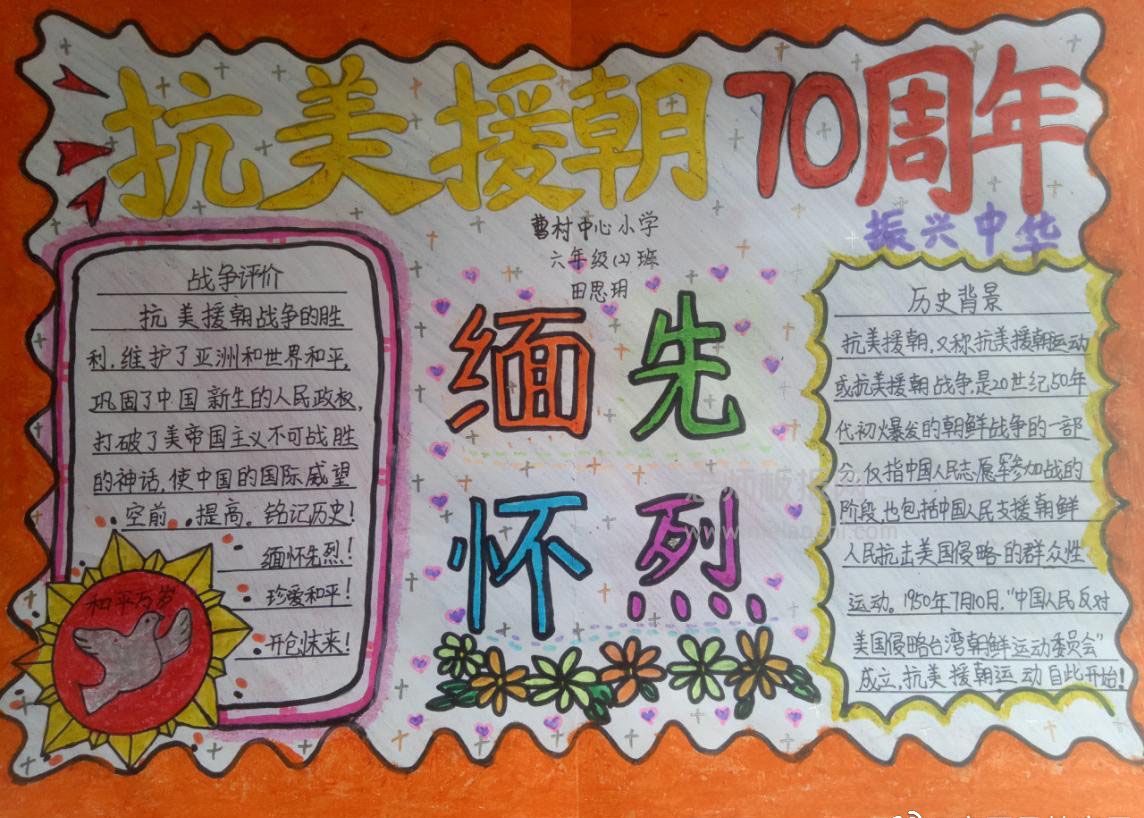 抗美援朝70周年
振兴中华
曹村中心小学
六年级(2)班
田思玥
缅先
怀烈
战争评价
抗美援朝战争的胜
利,维护了亚洲和世界和平,
巩固了中国新生的人民政权,
打破了美帝国主义不可战胜
的神话,使中国的国际威望
空前提高。铭记历史!
缅怀先烈!
珍爱和平!
开创未来!
和平万岁
历史背景
抗美援朝,又称抗美援朝运动
或抗美援朝战争,是20世纪50年
代初火爆发的朝鲜战争的一部
分,仅指中国人民志愿军参加战的
阶段,也包括中国人民支援朝鲜
人民抗击美国侵略的群众性
运动。1950年7月10月,"中国人民反对
美国侵略台湾朝鲜运动委员会"
成立,抗美援朝运动自此开始!